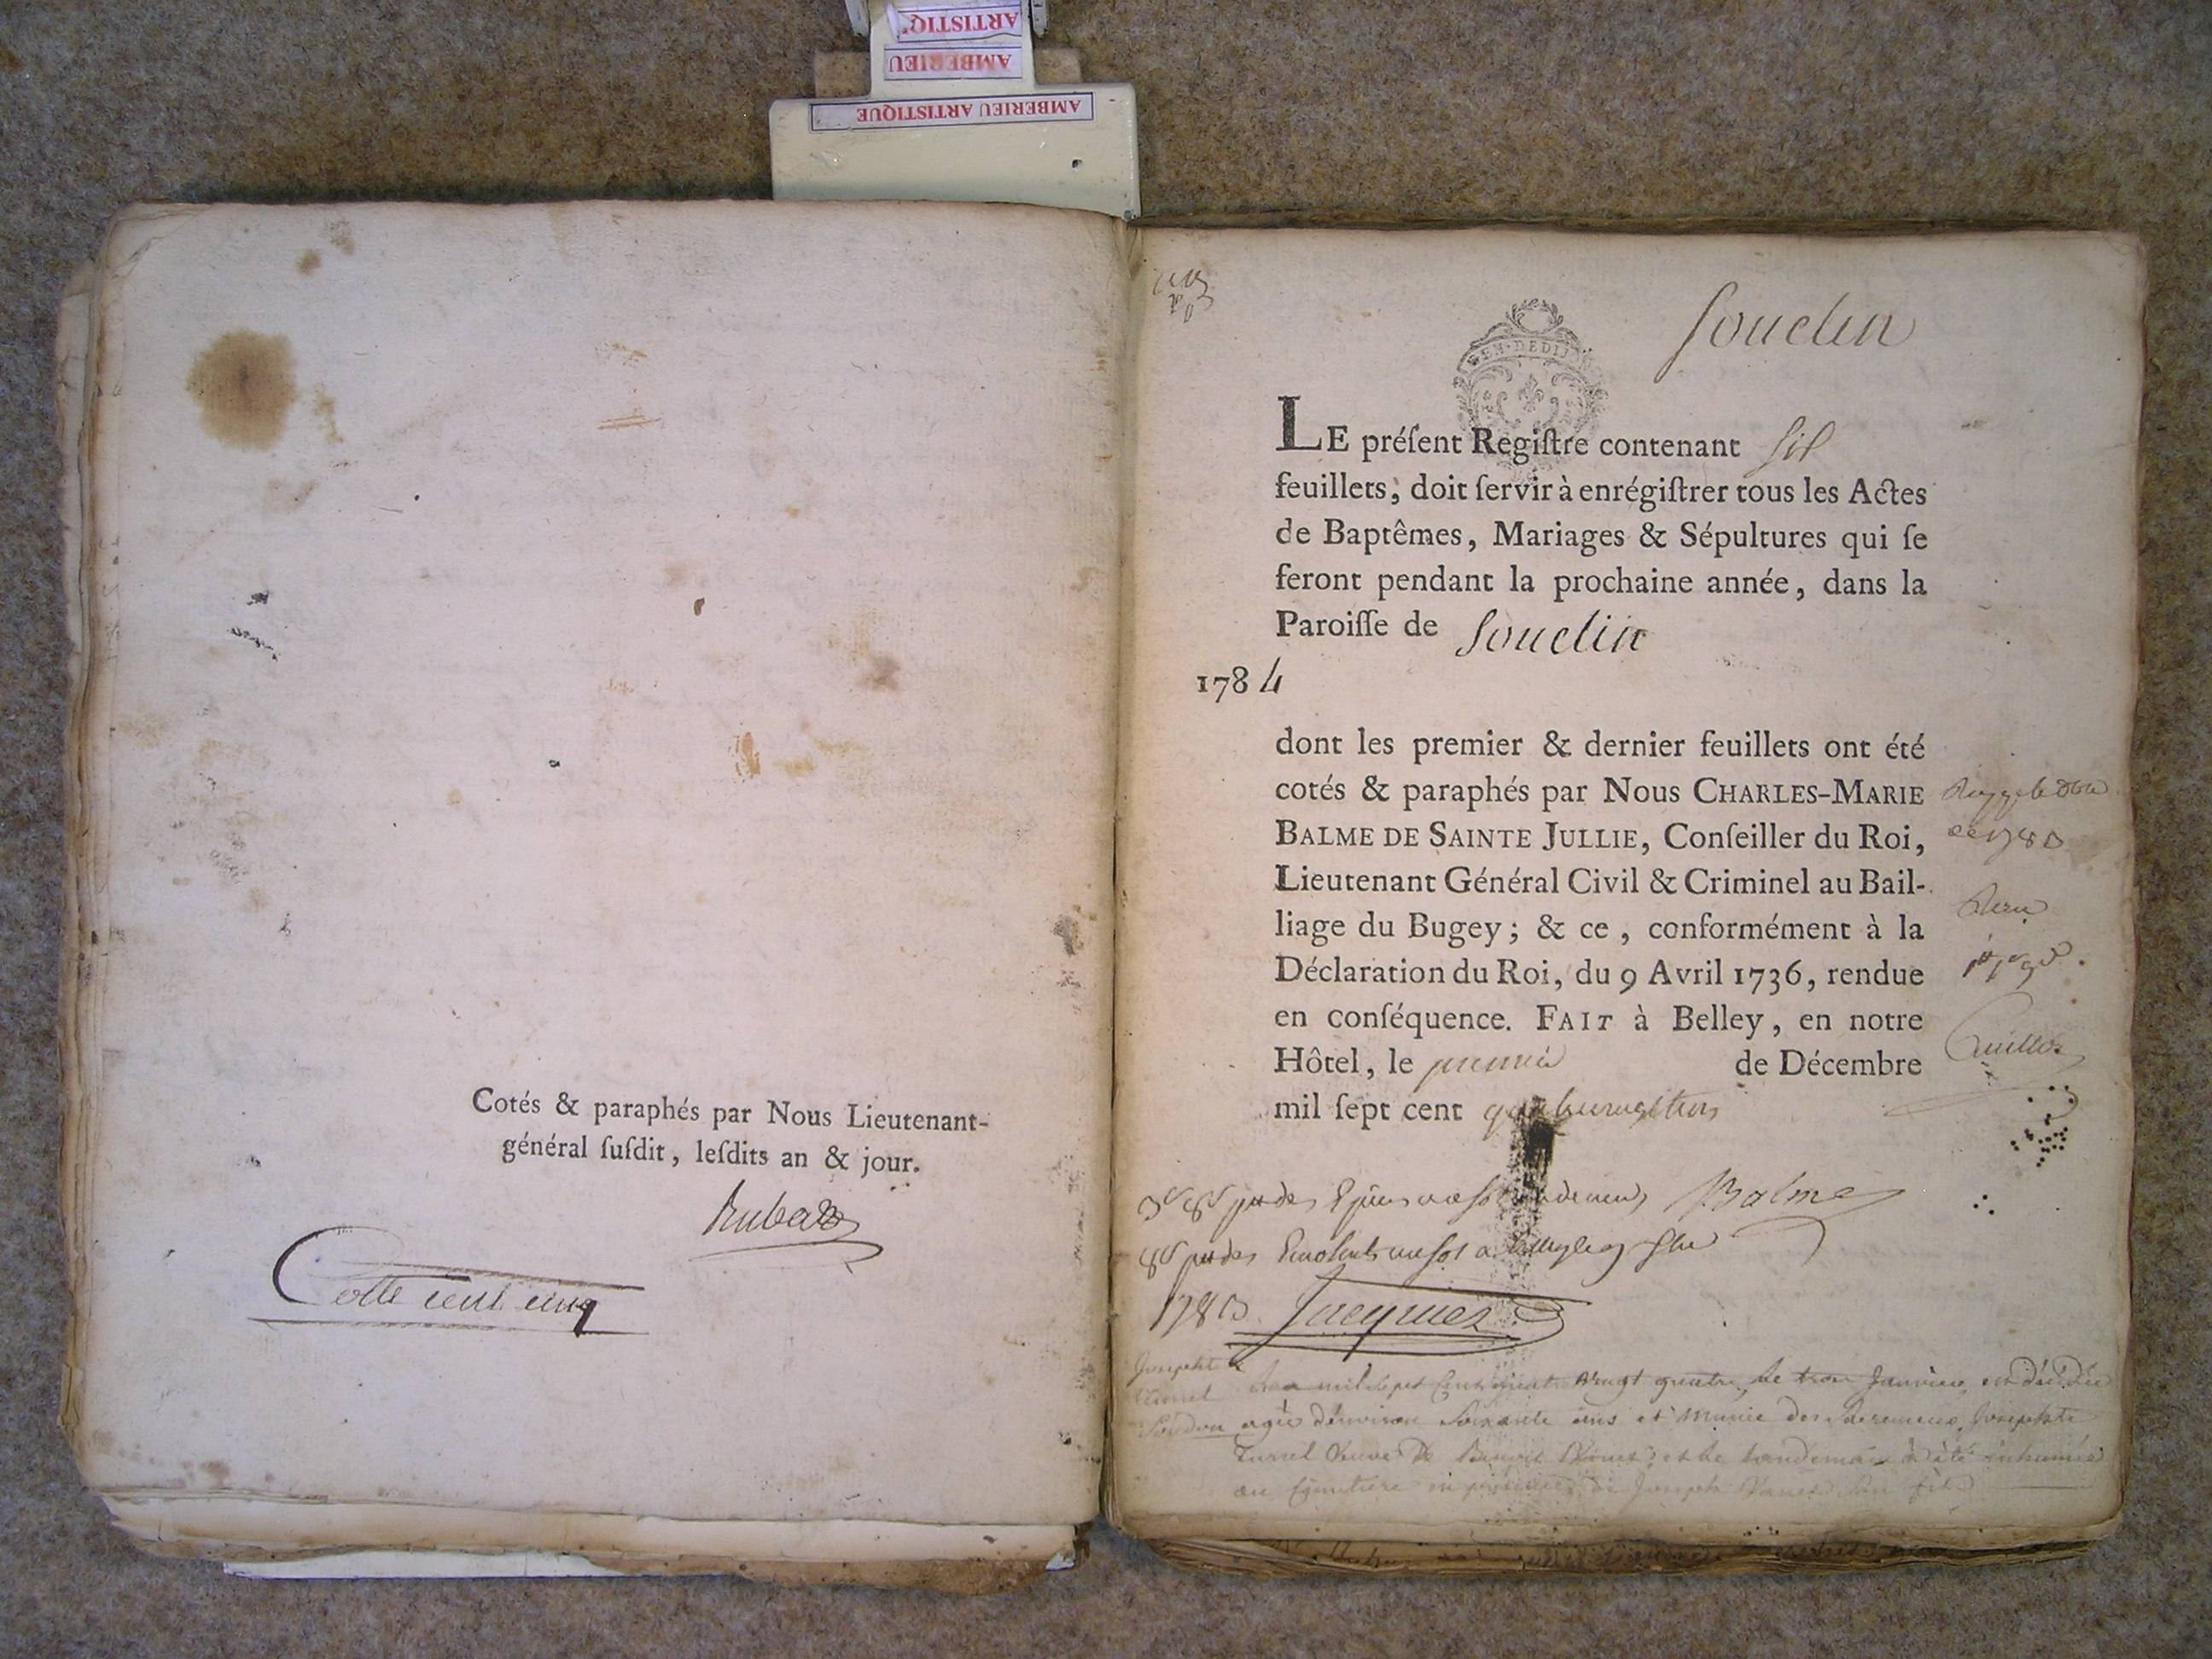 ARTISTIQ'
AMBERIEU
AMBERIEU ARTISTIQUE
Cotés & paraphés par Nous Lieutenant-
général ſuſdit, leſdits an & jour.
Cotte cent cinq
Souclin
GEN·DE DIJ
LE préſent Regiſtre contenant six
feuillets, doit ſervir à enrégiſtrer tous les Actes
de Baptêmes, Mariages & Sépultures qui ſe
feront pendant la prochaine année, dans la
Paroiſſe de Souclin
1784
dont les premier & dernier feuillets ont été
cotés & paraphés par Nous CHARLES-MARIE
BALME DE SAINTE JULLIE, Conſeiller du Roi,
Lieutenant Général Civil & Criminel au Bail-
liage du Bugey; & ce, conformément à la
Déclaration du Roi, du 9 Avril 1736, rendue
en conſéquence. FAIT à Belley, en notre
Hôtel, le premier de Décembre
mil ſept cent quatrevingttrois
Balme
1783 Jacquier
Josephte
turrel L'an mil sept cent quatre vingt quatre, le trois Janvier, est décédée
agée d'environ soixante ans et munie des sacremens, Josephte
Turrel veuve de Benoit et le lendemain a été inhumée
au cimetière en présence de Joseph son fils